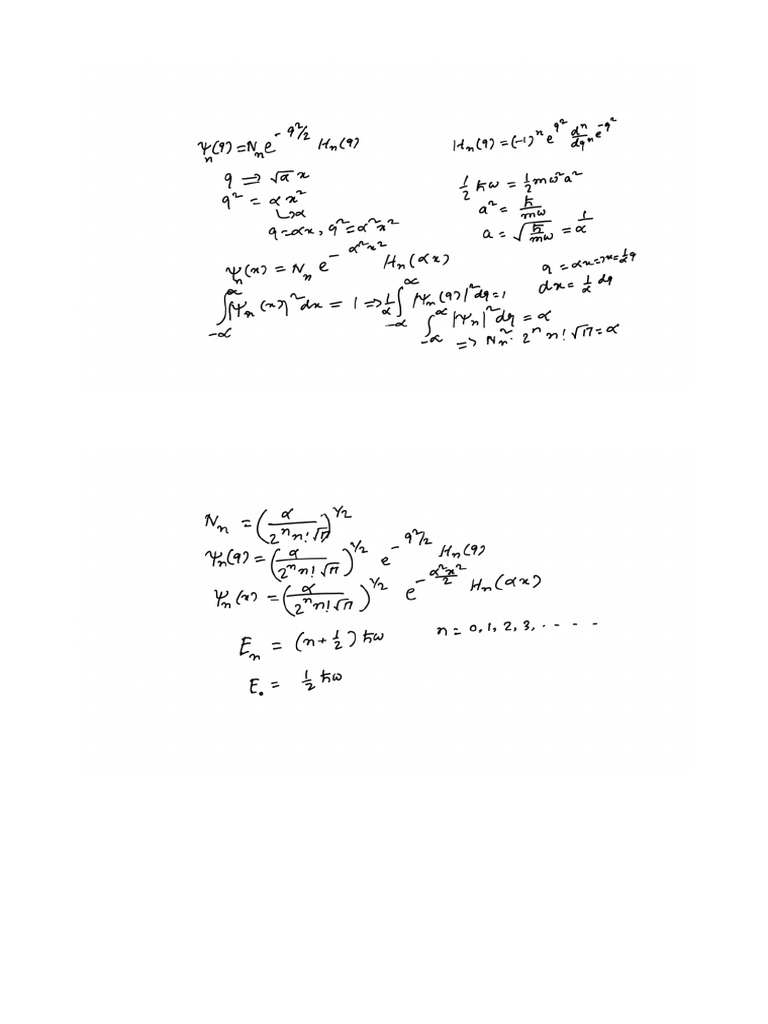 Ψₙ(q) = Nₙ e^{-q²/2} Hₙ(q)
Hₙ(q) = (-1)ⁿ e^{q²} dⁿ/dqⁿ e^{-q²}
q ⇒ √α x
½ ħω = ½ mω²a²
q² = αx²
↳α
a² = ħ/mω
q = αx, q² = α²x²
a = √(ħ/mω) = 1/α
Ψₙ(x) = Nₙ e^{-α²x²} Hₙ(αx)
q = αx ⇒ x = 1/α q
dx = 1/α dq
∫_{-∝}^{∝} |Ψₙ(x)|² dx = 1 ⇒ 1/α ∫_{-∝}^{∝} |Ψₙ(q)|² dq = 1
∫_{-∝}^{∝} |Ψₙ|² dq = α
⇒ Nₙ² · 2ⁿ n! √π = α
Nₙ = (α / 2ⁿ n! √π)^{1/2}
Ψₙ(q) = (α / 2ⁿ n! √π)^{1/2} e^{-q²/2} Hₙ(q)
Ψₙ(x) = (α / 2ⁿ n! √π)^{1/2} e^{-α²x²/2} Hₙ(αx)
Eₙ = (n + ½) ħω
n = 0, 1, 2, 3, - - - -
E₀ = ½ ħω